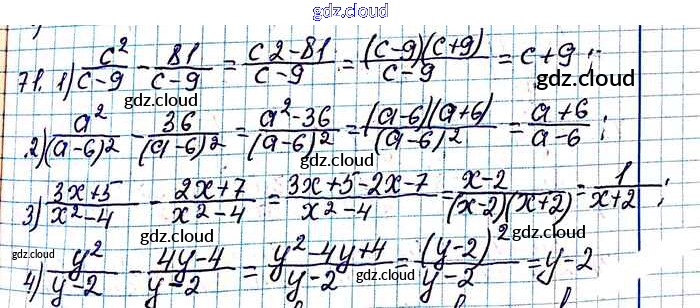 gdz.cloud
71. 1) c²/(c-9) - 81/(c-9) = (c2-81)/(c-9) = (c-9)(c+9)/(c-9) = c+9;
gdz.cloud gdz.cloud
2) a²/(a-6)² - 36/(a-6)² = (a²-36)/(a-6)² = (a-6)(a+6)/(a-6)² = (a+6)/(a-6);
gdz.cloud gdz.cloud
3) (3x+5)/(x²-4) - (2x+7)/(x²-4) = (3x+5-2x-7)/(x²-4) = (x-2)/((x-2)(x+2)) = 1/(x+2);
gdz.cloud gdz.cloud
4) y²/(y-2) - (4y-4)/(y-2) = (y²-4y+4)/(y-2) = (y-2)²/(y-2) = y-2
gdz.cloud gdz.cloud
gdz.cloud